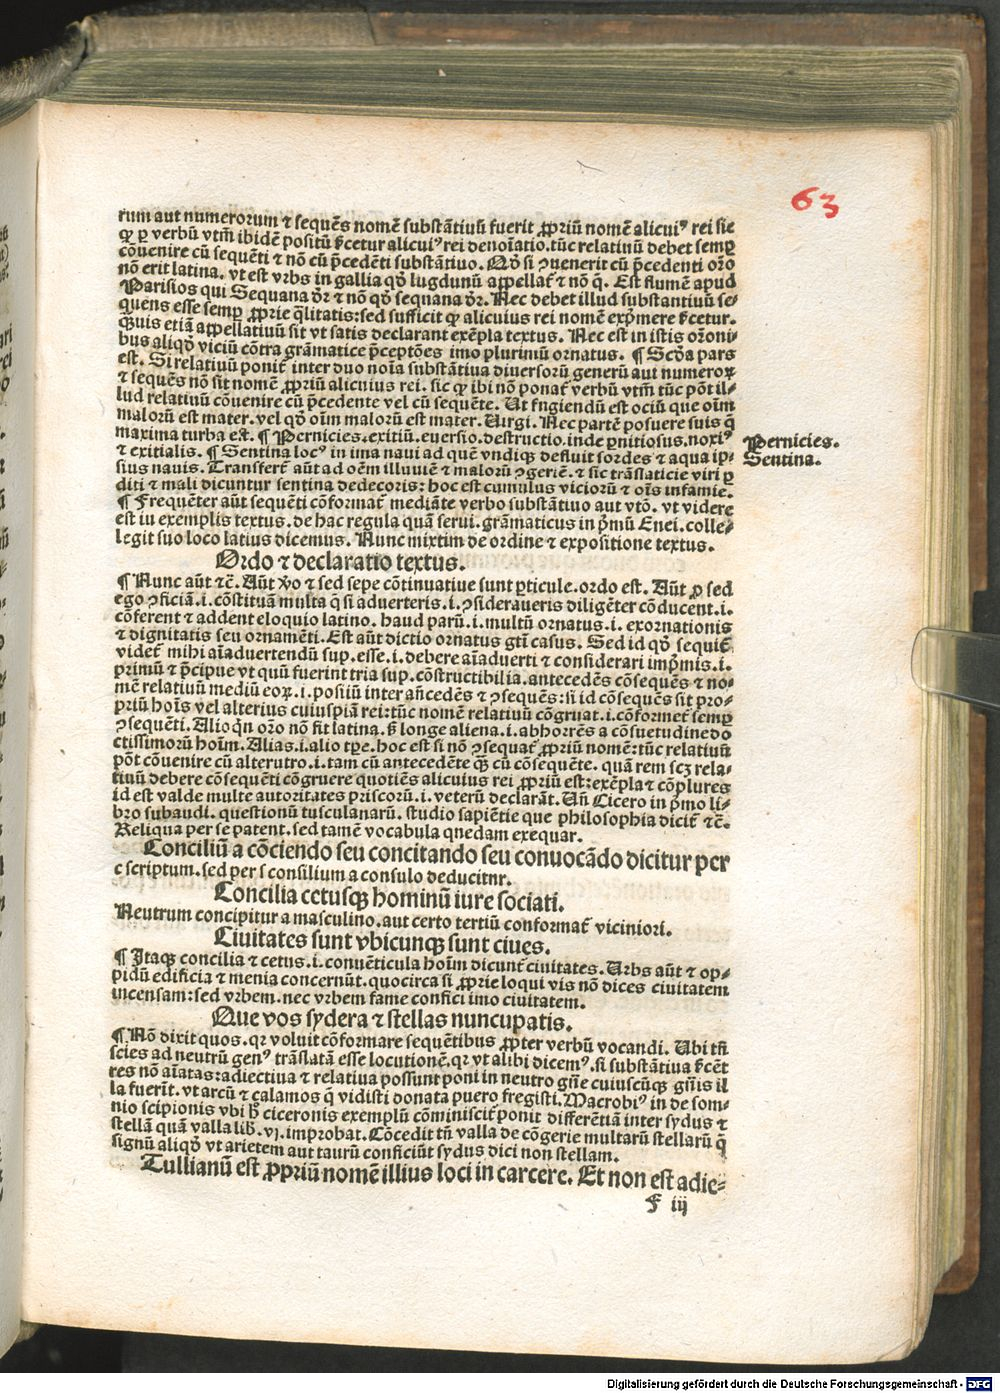 63
rum aut numerorum ⁊ sequẽs nomẽ substãtiuũ fuerit ꝓpriũ nomẽ alicuiꝰ rei sic
ꝙ ꝑ verbũ vtm̃ ibidẽ positũ fꝛcetur alicuiꝰ rei denoĩatio. tũc relatiuũ debet semꝑ
cõuenire cũ sequẽti ⁊ nõ cũ p̃cedẽti substãtiuo. Qđ si ↄuenerit cũ p̃cedenti or̃o
nõ erit latina. vt est vrbs in gallia qđ lugdunũ appellat̃ ⁊ nõ q̃. Est flumẽ apud
Parisios qui Sequana dr̃ ⁊ nõ qđ sequana dr̃. Nec debet illud substantiuũ se⸗
quens esse semꝑ ꝓprie q̃litatis: sed sufficit ꝙ alicuius rei nomẽ exp̃mere fꝛcetur.
Quis etiã appellatiuũ sit vt satis declarant exẽpla textus. Nec est in istis or̃oni⸗
bus aliqđ viciũ cõtra grãmatice p̃ceptões imo plurimũ ornatus. ¶ Scđa pars
est. Si relatiuũ ponit̃ inter duo noĩa substãtiua diuersorũ generũ aut numeroꝝ
⁊ sequẽs nõ sit nomẽ ꝓpriũ alicuius rei. sic ꝙ ibi nõ ponat̃ verbũ vtm̃ tũc põt il⸗
lud relatiuũ cõuenire cũ p̃cedente vel cũ sequẽte. Ut fugiendũ est ociũ que oĩm
malorũ est mater. vel qđ oĩm malorũ est mater. Uirgi. Nec partẽ posuere suis q̃
maxima turba est. ¶ Pernicies. exitiũ. euersio. destructio. inde ꝑnitiosus. noxiꝰ
⁊ exitialis. ¶ Sentina locꝰ in ima naui ad quẽ vndiꝙ defluit sordes ⁊ aqua ip⸗
sius nauis. Transfert̃ aũt ad oẽm illuuiẽ ⁊ malorũ ↄgeriẽ. ⁊ sic trãslaticie viri ꝑ
diti ⁊ mali dicuntur sentina dedecoris: hoc est cumulus viciorũ ⁊ oĩs infamie.
¶ Frequẽter aũt sequẽti cõformat̃ mediãte verbo substãtiuo aut vtõ. vt videre
est iu exemplis textus. de hac regula quã serui. grãmaticus in p̃mũ Enei. colle⸗
legit suo loco latius dicemus. Nunc mixtim de ordine ⁊ expositione textus.
Pernicies.
Sentina.
Ordo ⁊ declaratio textus.
¶ Nunc aũt ⁊c̃. Aũt v̾o ⁊ sed sepe cõtinuatiue sunt ꝑticule. ordo est. Aũt ꝓ sed
ego ↄficiã. i. cõstituã multa q̃ si aduerteris. i. ↄsideraueris diligẽter cõducent. i.
cõferent ⁊ addent eloquio latino. haud parũ. i. multũ ornatus. i. exornationis
⁊ dignitatis seu ornamẽti. Est aũt dictio ornatus gt̃i casus. Sed id qđ sequit̃
videt̃ mihi aĩaduertendũ sup. esse. i. debere aĩaduerti ⁊ considerari imp̃mis. i.
primũ ⁊ p̃cipue vt quũ fuerint tria sup. cõstructibilia. antecedẽs cõsequẽs ⁊ no⸗
mẽ relatiuũ mediũ eoꝝ. i. positũ inter añcedẽs ⁊ ↄsequẽs: si id cõsequẽs sit pro⸗
priũ hoĩs vel alterius cuiuspiã rei: tũc nomẽ relatiuũ cõgruat. i. cõformet̃ semꝑ
ↄsequẽti. Alio qñ or̃o nõ fit latina. s̃ longe aliena. i. abhorrẽs a cõsuetudine do
ctissimorũ hoĩm. Alias. i. alio tꝑe. hoc est si nõ ↄsequat̃ ꝓpriũ nomẽ: tũc relatiuũ
põt cõuenire cũ alterutro. i. tam cũ antecedẽte q̃ꝫ cũ cõsequẽte. quã rem scꝫ rela⸗
tiuũ debere cõsequẽti cõgruere quotiẽs alicuius rei ꝓpriũ est: exẽpla ⁊ cõplures
id est valde multe autoritates priscorũ. i. veterũ declarãt. Uñ Cicero in p̃mo li⸗
bro subaudi. questionũ tusculanarũ. studio sapiẽtie que philosophia dicit̃ ⁊c̃.
Reliqua per se patent. sed tamẽ vocabula quedam exequar.
Conciliũ a cõciendo seu concitando seu conuocãdo dicitur per
c scriptum. sed per s consilium a consulo deducitnr.
Concilia cetusqꝫ hominũ iure sociati.
Neutrum concipitur a masculino. aut certo tertiũ conformat̃ viciniori.
Ciuitates sunt vbicunqꝫ sunt ciues.
¶ Itaqꝫ concilia ⁊ cetus. i. conuẽticula hoĩm dicunt̃ ciuitates. Urbs aũt ⁊ op⸗
pidũ edificia ⁊ menia concernũt. quocirca si ꝓprie loqui vis nõ dices ciuitatem
incensam: sed vrbem. nec vrbem fame confici imo ciuitatem.
Que vos sydera ⁊ stellas nuncupatis.
¶ Nõ dixit quos. qꝛ voluit cõformare sequẽtibus ꝓpter verbũ vocandi. Ubi tñ
scies ad neutrũ genꝰ trãslatã esse locutionẽ. qꝛ vt alibi dicemꝰ. si substãtiua fꝛcẽt
res nõ aĩatas: adiectiua ⁊ relatiua possunt poni in neutro gñe cuiuscũqꝫ gñis il
la fuerĩt. vt arcũ ⁊ calamos q̃ vidisti donata puero fregisti. Macrobiꝰ in de som⸗
nio scipionis vbi h̃ ciceronis exemplũ cõminiscit̃ ponit differẽtiã inter sydus ⁊
stellã quã valla lib̃. vj. improbat. Cõcedit tñ valla de cõgerie multarũ stellarũ q̃
signũ aliqđ vt arietem aut taurũ conficiũt sydus dici non stellam.
Tullianũ est ꝓpriũ nomẽ illius loci in carcere. Et non est adie⸗
F iij
Digitalisierung gefördert durch die Deutsche Forschungsgemeinschaft - DFG